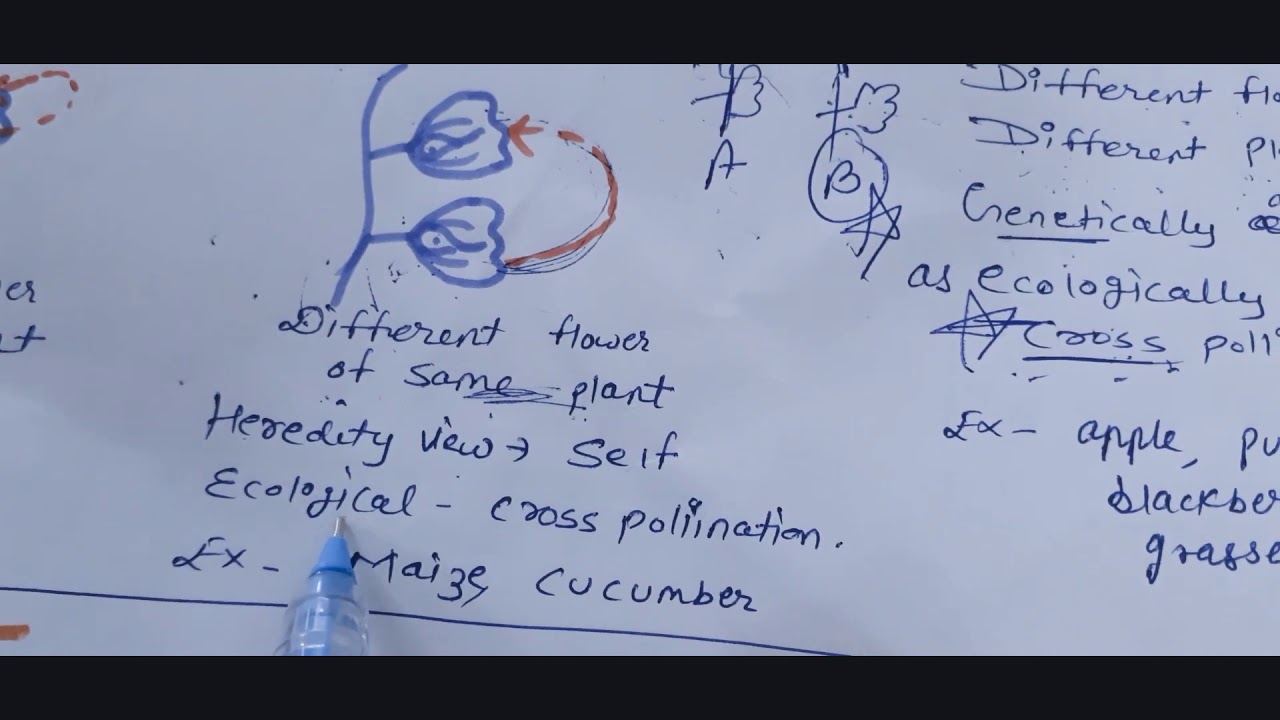 er
t
Different flower
of same plant
Heredity view → Self
Ecological - cross poliination.
Ex - Maize, cucumber
A
B
Different flo
Different pl
Genetically
as ecologically
Cross poll
Ex - apple, pu
blackber
grasse